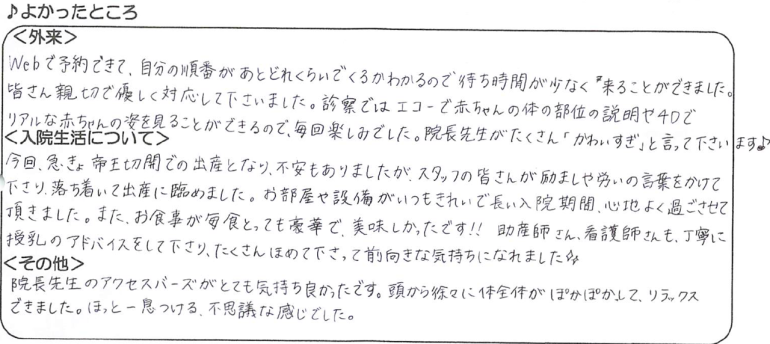 ♪よかったところ
<外来>
Webで予約できて、自分の順番があとどれくらいでくるかわかるので待ち時間が少なく来ることができました。
皆さん親切で優しく対応して下さいました。診察ではエコーで赤ちゃんの体の部位の説明や4Dで
リアルな赤ちゃんの姿を見ることができるので、毎回楽しみでした。院長先生がたくさん「かわいすぎ」と言って下さいます♪
<入院生活について>
今回、急きょ帝王切開での出産となり、不安もありましたが、スタッフの皆さんが励ましや労いの言葉をかけて
下さり、落ち着いて出産に臨めました。お部屋や設備がいつもきれいで長い入院期間、心地よく過ごさせて
頂きました。また、お食事が毎食とっても豪華で、美味しかったです!! 助産師さん、看護師さんも、丁寧に
授乳のアドバイスをして下さり、たくさんほめて下さって前向きな気持ちになれました
<その他>
院長先生のアクセスバーズがとても気持ち良かったです。頭から徐々に体全体がぽかぽかして、リラックス
できました。ほっと一息つける、不思議な感じでした。